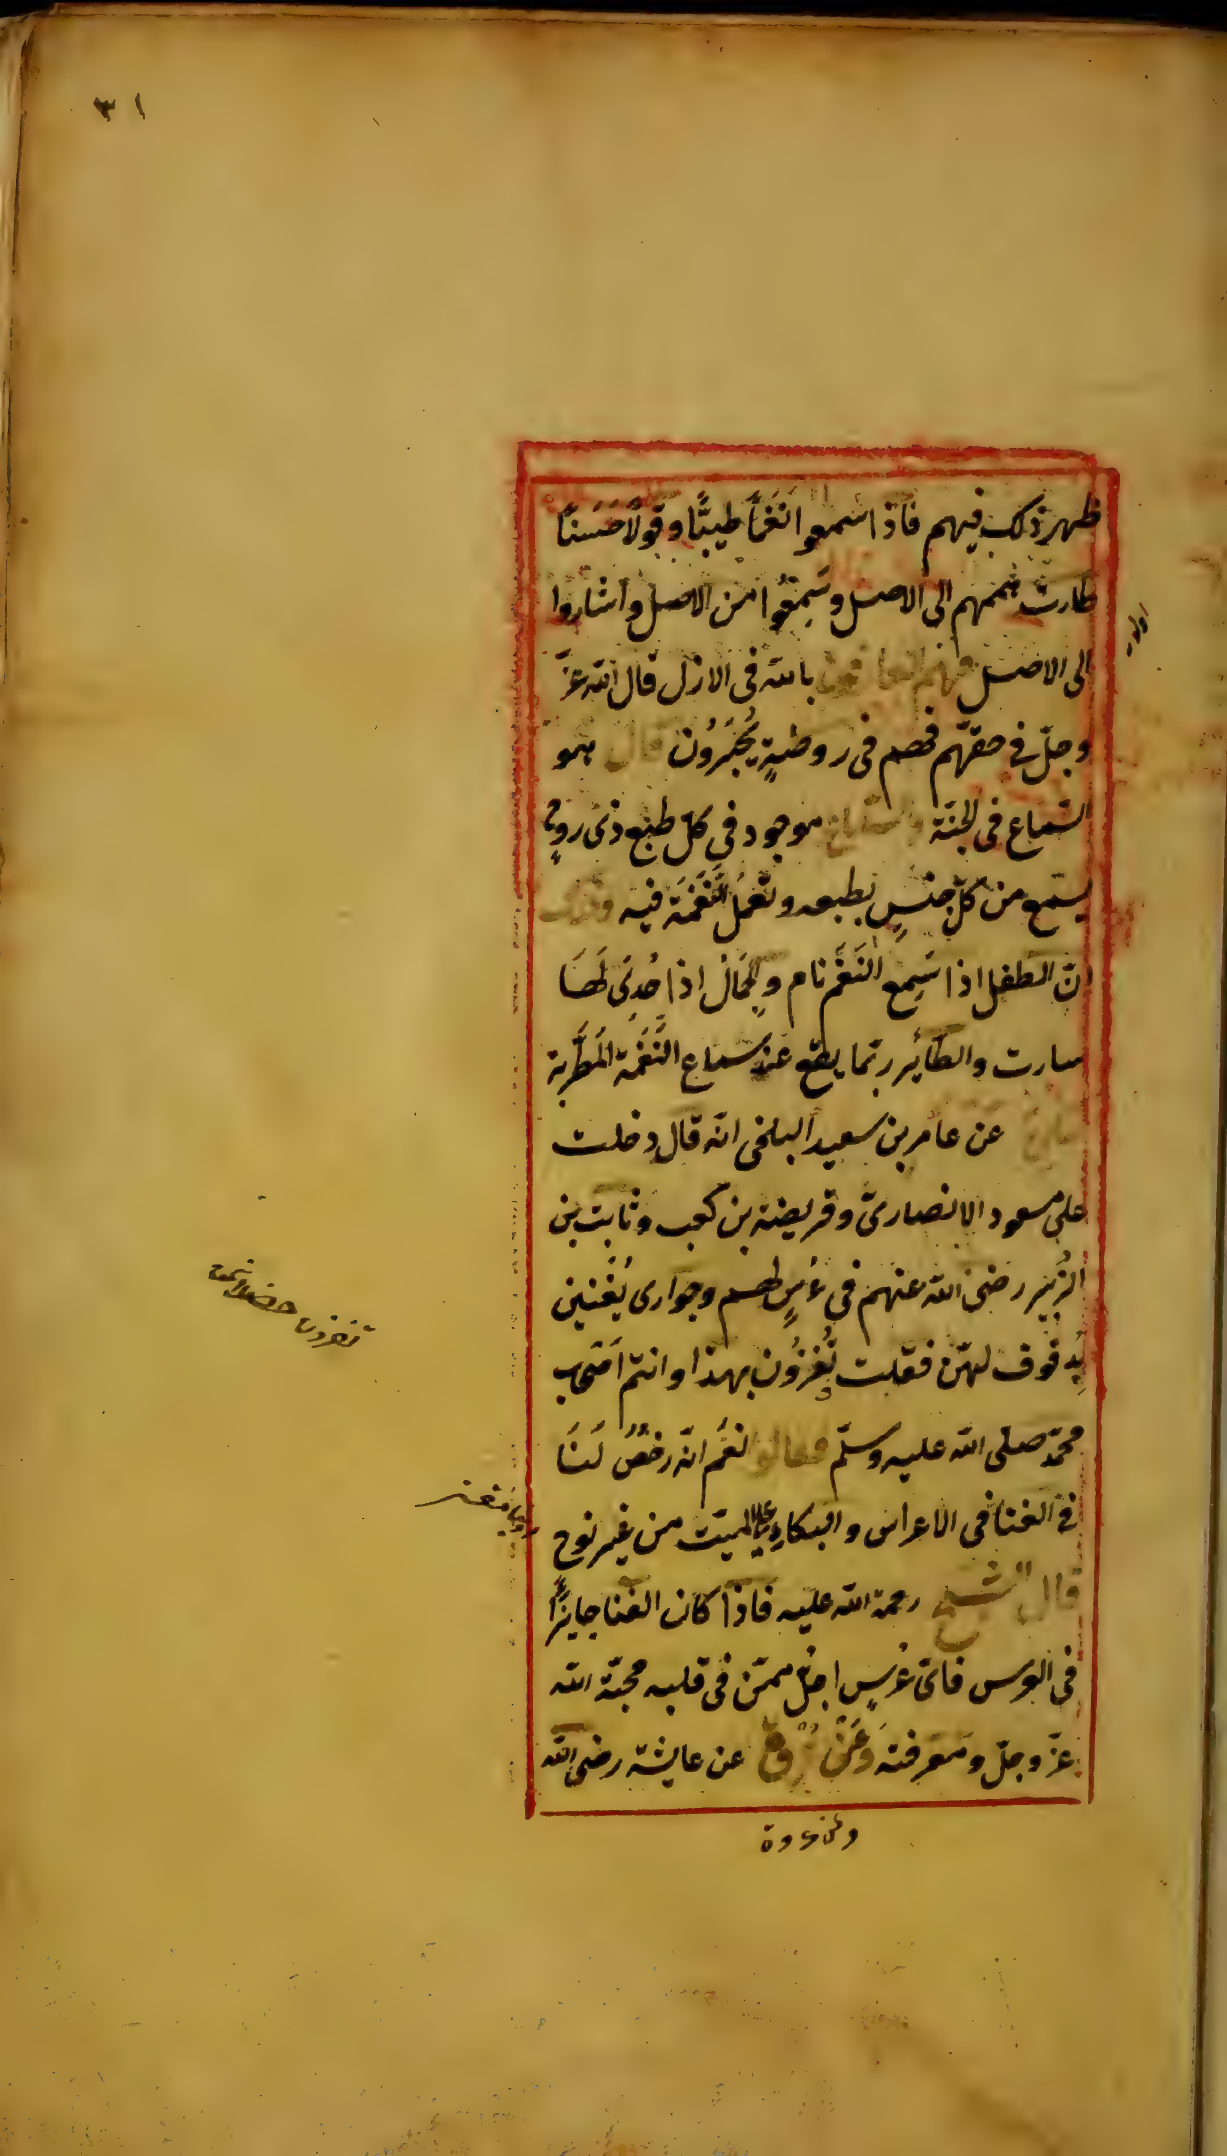 ٣١
ظهر ذلك فيهم فاذا سمعوا نَغَماً طيبًّا وقولاً حَسَناً
طارت هممهم الى الاصل وسَمِعُوا من الاصل واشاروا
الى الاصل فهم العارفون بالله فى الازل قال الله عزّ
وجلّ فى حقهّم فهم فى روضةٍ يُحْبَرُون قال هو
السّماع فى الجنّة والسّماع موجود فى كلّ طبع ذى روحٍ
يسمع من كلّ جنسٍ بطبعه وتعمل النَّغَمَة فيه وذلك
انّ الطفل اذا سَمِع النَغَم نام والجمال اذا حُدِىَ لَهَا
سارت والطّائر ربّما يقع عند سماع النَّغَمة المُطَرِّبة
عن عامر بن سعيد البلخى انّه قال دخلت
على مسعود الانصارىّ وقريضة بن كعب وثابت بن
الزُبير رضى الله عنهم فى عُرسٍ لهم وجوارى يُغَنين
بِدفوف لهنّ فقلت تُغزُون بهذا وانتم اَصحَاب
محمّد صلى الله عليه وسلّم فقالوا نعَم انّه رخّصُ لَنَا
فى الغنا فى الاعراس والبكاءِ على الميّت من غير نوح
قال الشيخ رحمة الله عليه فاذا كان الغنا جايزًا
فى العرس فاىّ عُرسٍ اجلّ ممّن فى قلبه محبّة الله
عزّ وجلّ ومَعرفتهَ وَعَنْ عُرْوَة عن عايشة رضى الله
وعن عروة